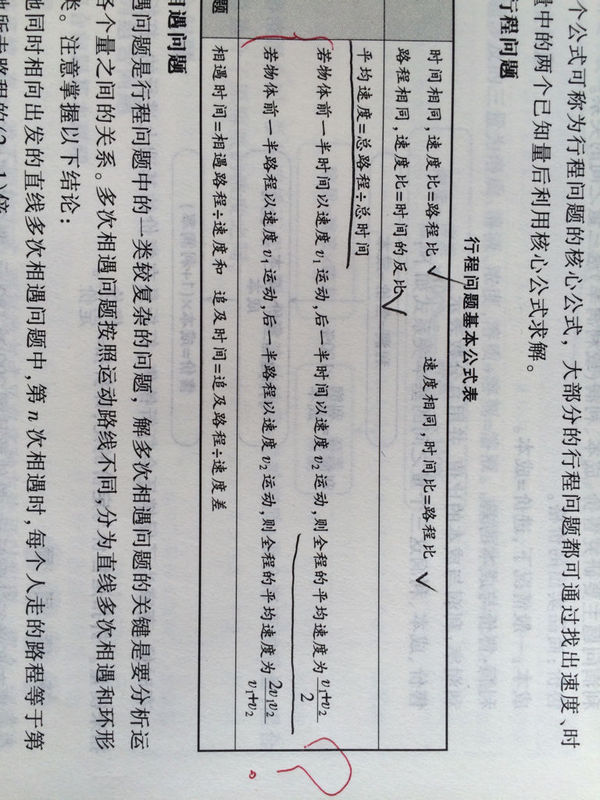 个公式可称为行程问题的核心公式，大部分的行程问题都可通过找出速度、时
量中的两个已知量后利用核心公式求解。
行程问题
行程问题基本公式表
时间相同，速度比=路程比 速度相同，时间比=路程比
路程相同，速度比=时间的反比
平均速度=总路程÷总时间
若物体前一半时间以速度v₁运动，后一半时间以速度v₂运动，则全程的平均速度为(v₁+v₂)/2
若物体前一半路程以速度v₁运动，后一半路程以速度v₂运动，则全程的平均速度为2v₁v₂/(v₁+v₂)
题
相遇时间=相遇路程÷速度和 追及时间=追及路程÷速度差
相遇问题
遇问题是行程问题中的一类较复杂的问题，解多次相遇问题的关键是要分析运
各个量之间的关系。多次相遇问题按照运动路线不同，分为直线多次相遇和环形
类。注意掌握以下结论：
地同时相向出发的直线多次相遇问题中，第n次相遇时，每个人走的路程等于第